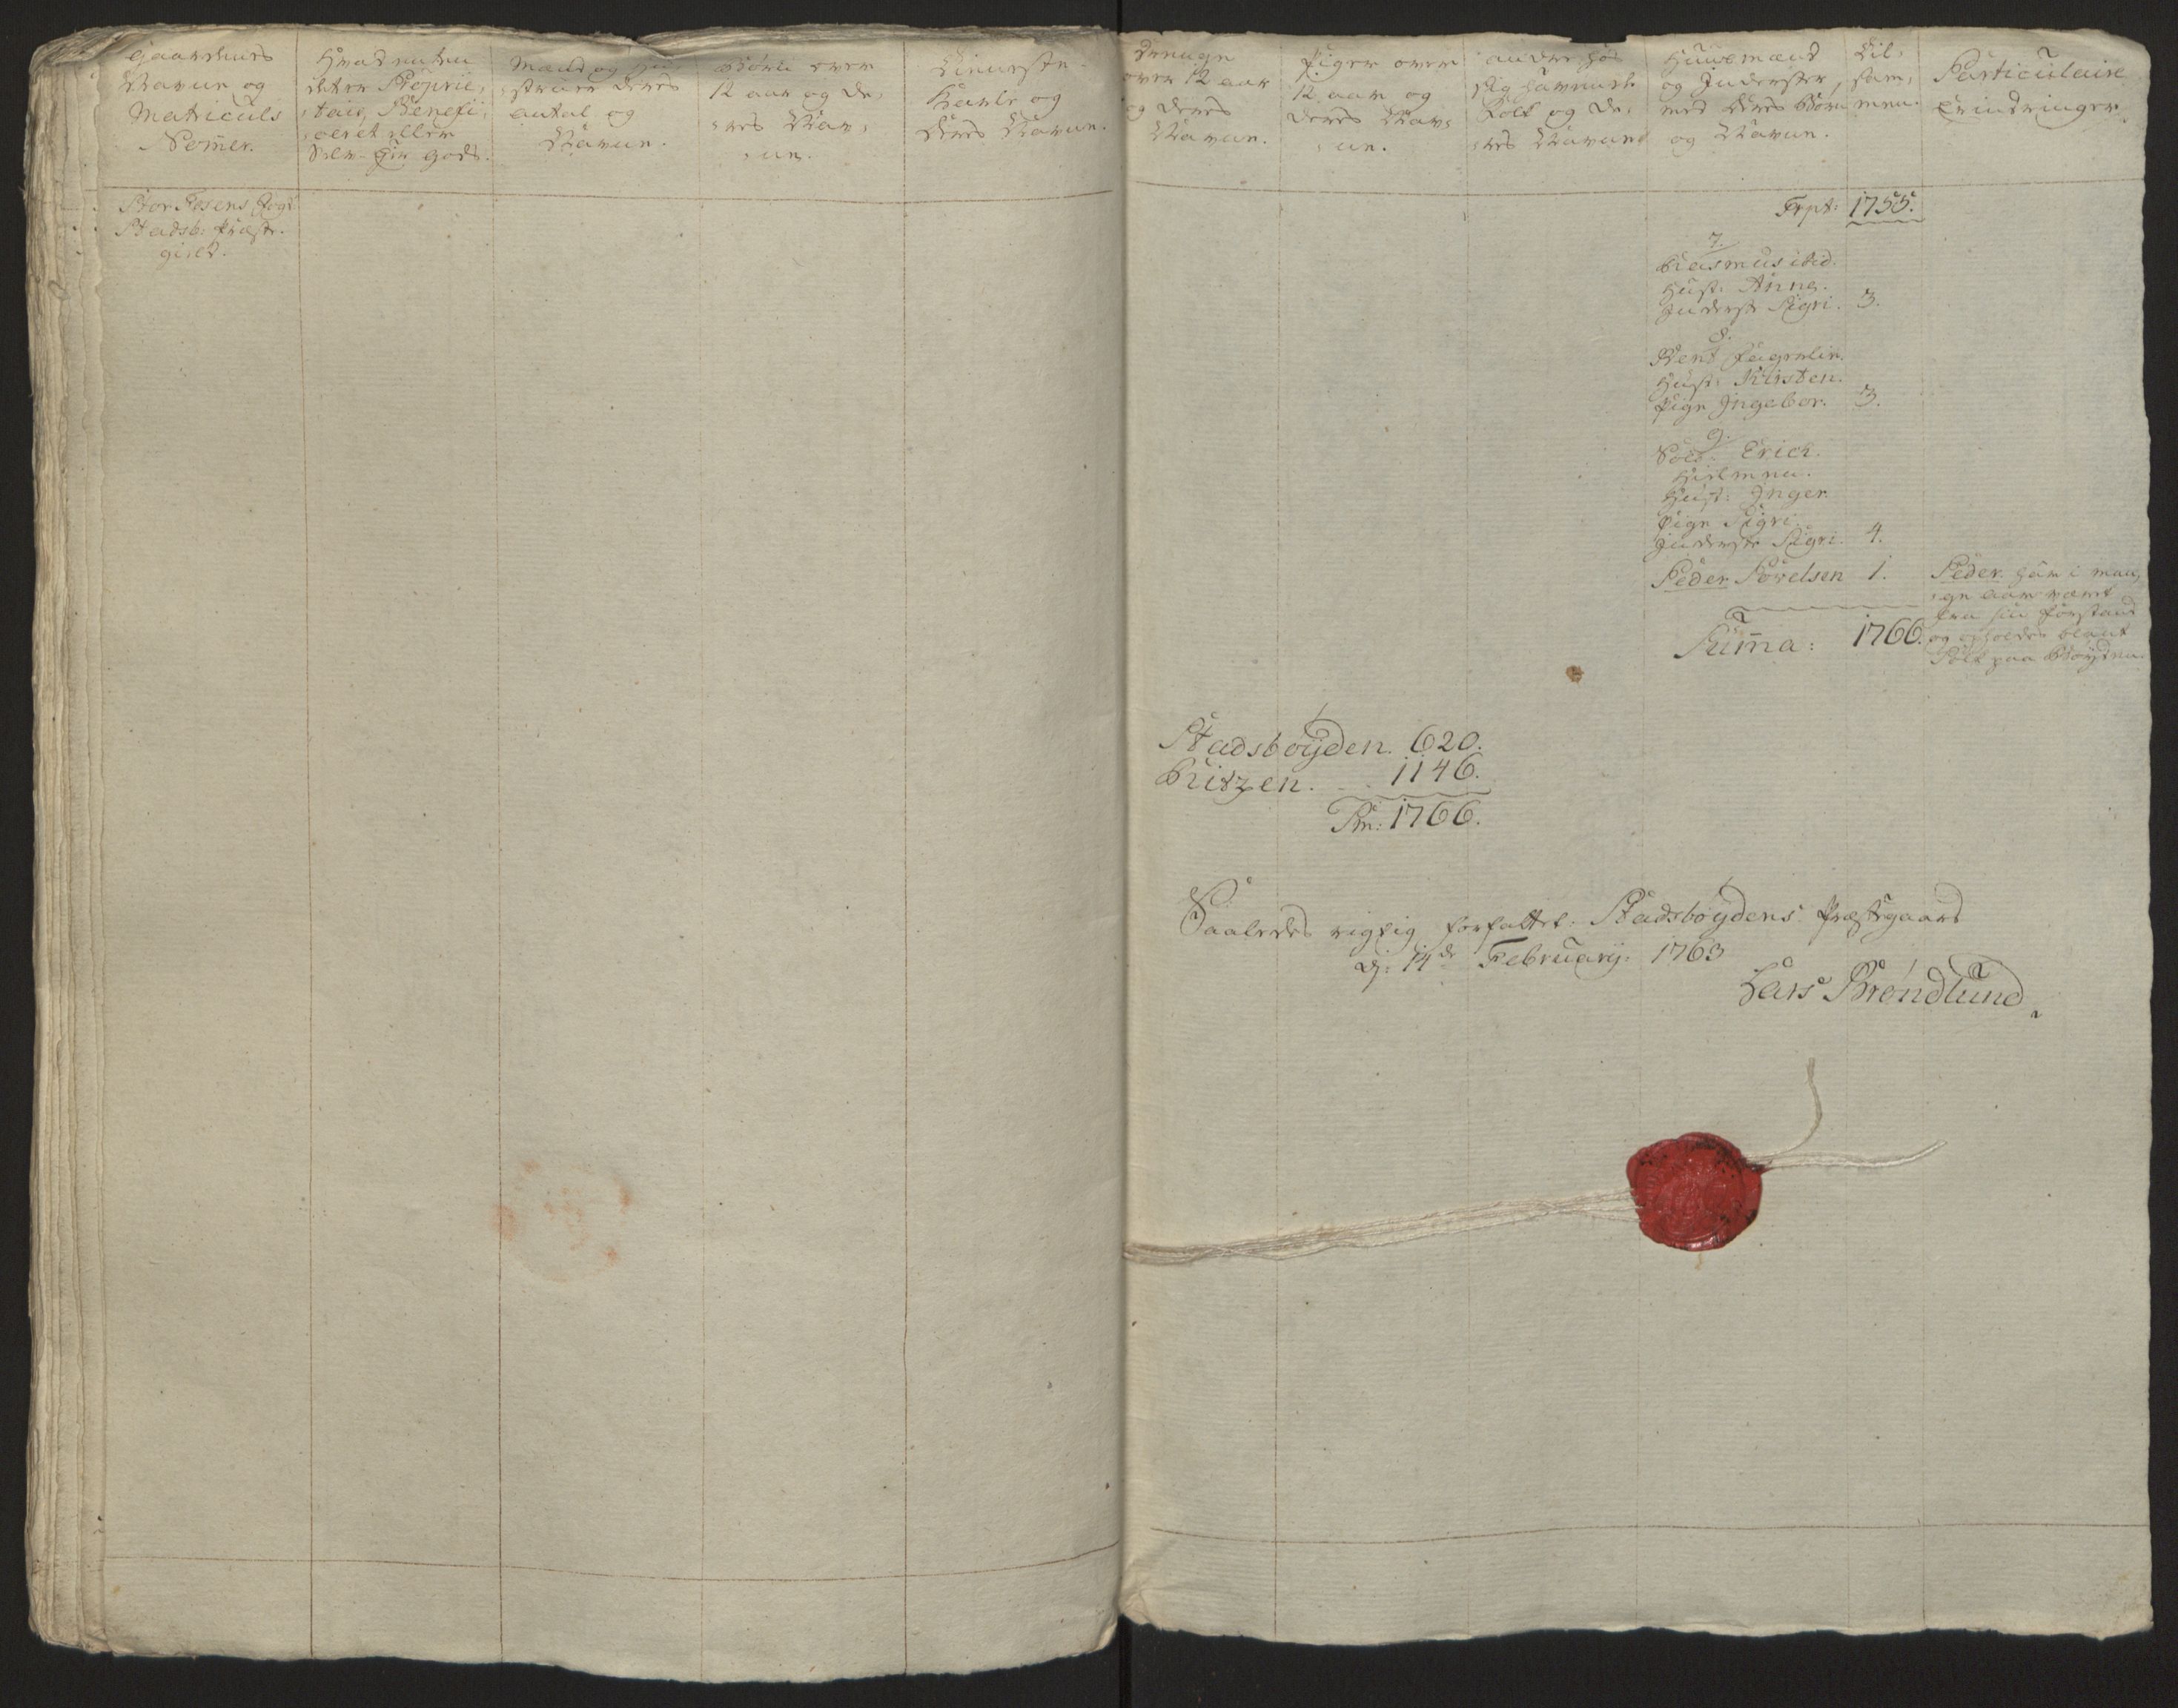 Gaardenes
Navne og
Matriculs
Nom̄er.
Hvad enten
det er Proprie,
:tair, Benefi,
:ceret eller
Selv-Eier gods.
Mænd og Hu-
:struer deres
antal og
Navne.
Børn over
12 aar og de,
:res Nav,
:ne.
Tieneste-
Karle og
deres Navne.
Drenge
over 12 aar
og deres
Navne.
Piger over
12 aar og
deres Nav,
:ne.
andre hos
sig havende
Folk og de,
:res Navne
Huusmænd
og Inderster,
med deres Børn
og Navne.
Til,
sam,
men.
Particulaire
Erindringer.
Stor Fosens Fogd
Stadsb: Præste-
gield.
Trpt: 1755.
7.
Rasmus ibid.
Hust: Anne.
Inderste Sigri. 3.
8.
Bent Fagerlie.
Hust: Kirsten.
Pige Ingebor. 3.
9.
Sold: Erich.
Hust: Inger
Pige Sigri.
Inderste Sigri. 4.
Peder Povelsen 1.
Peder har i man,
:ge aar været
fra sin Forstand
og opholder blant
Folk paa Bøyden.
Sum̄a: 1766.
Stadsbøyden. 620.
Ritzen. 1146.
Sm: 1766.
Saaledes rigtig forfattet. Stadsbøydens Præstegaard
dj: 14de February: 1763
Lars Brøndlund